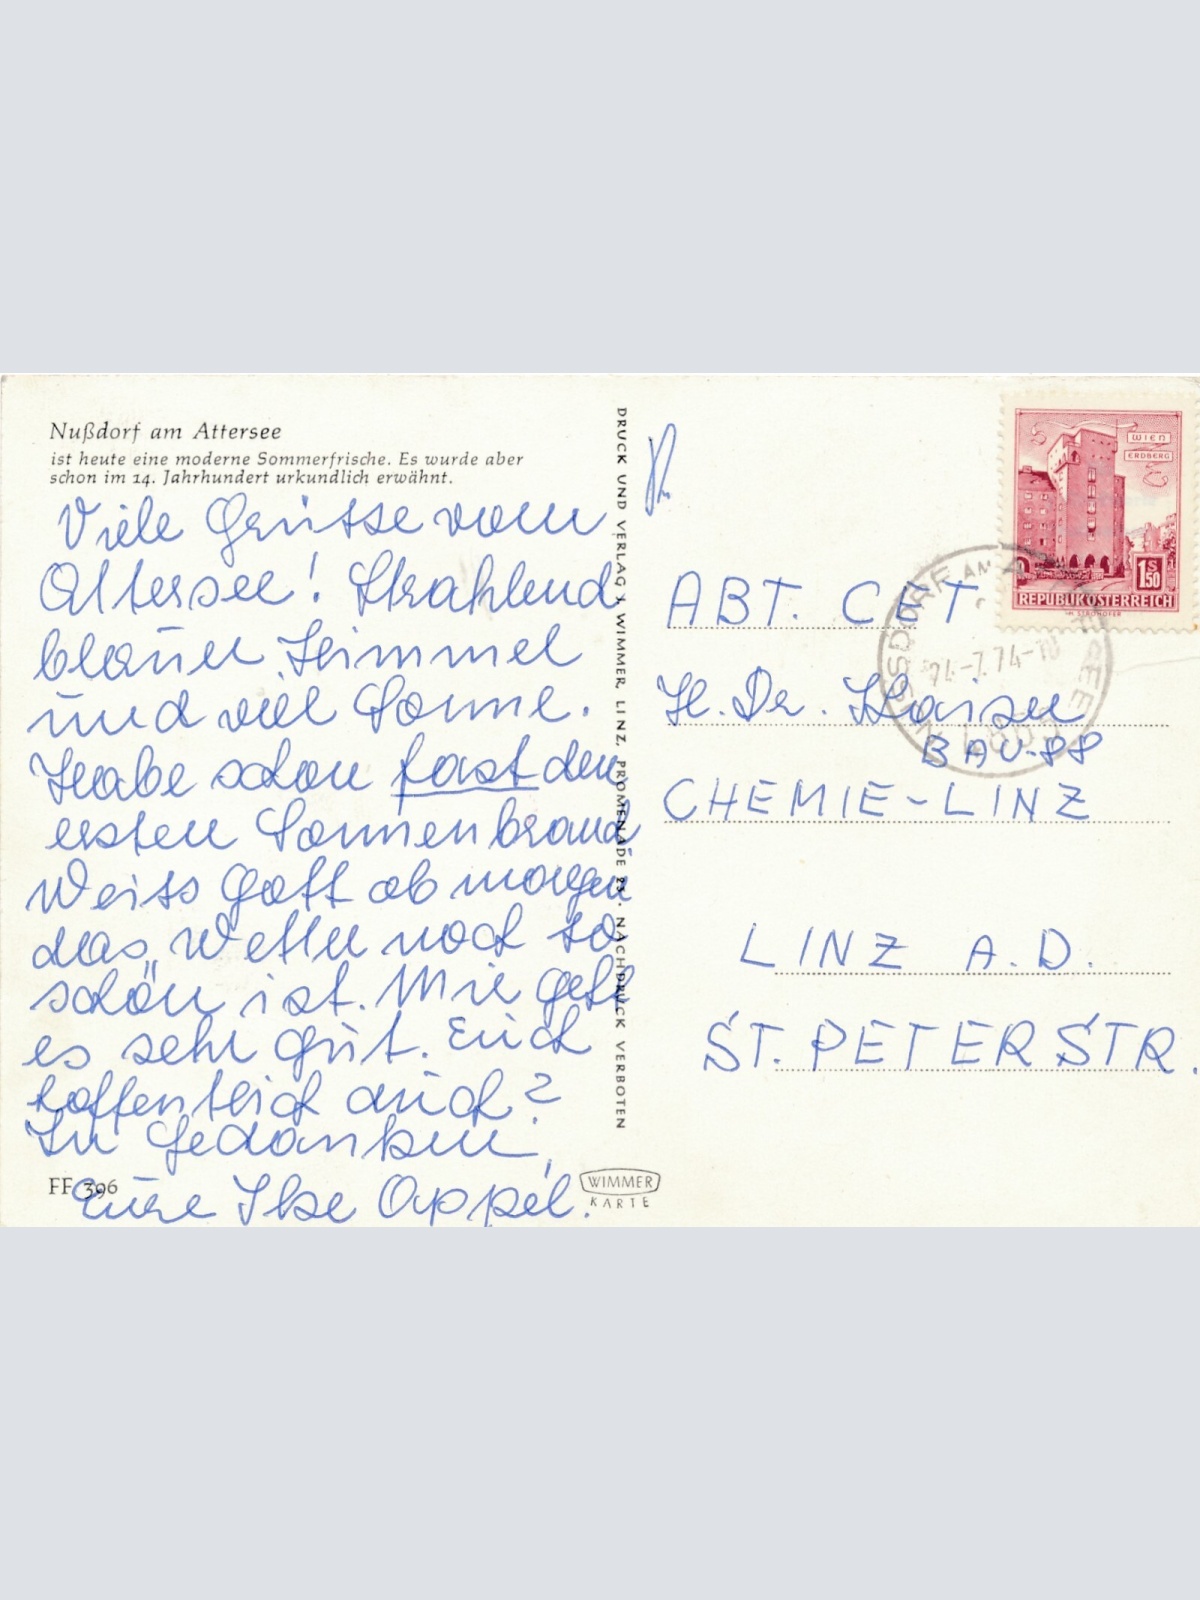 Nußdorf am Attersee
ist heute eine moderne Sommerfrische. Es wurde aber
schon im 14. Jahrhundert urkundlich erwähnt.
Viele Grüsse vom
Attersee! Strahlend
blauer Himmel
und viel Sonne.
Habe schon fast den
ersten Sonnenbrand
Weiss Gott ob morgen
das Wetter noch so
schön ist. Mir geht
es sehr gut. Euch
hoffentlich auch?
In Gedanken,
Eure Ilse Appel.
FF 396
DRUCK UND VERLAG J. WIMMER, LINZ, PROMENADE 23. NACHDRUCK VERBOTEN
WIMMER
KARTE
WIEN
ERDBERG
1S
50
REPUBLIK ÖSTERREICH
NUSSDORF AM ATTERSEE
-7.74-
ABT. CET
H. Dr. Kaiser
BAU-88
CHEMIE-LINZ
LINZ A.D.
ST. PETERSTR.